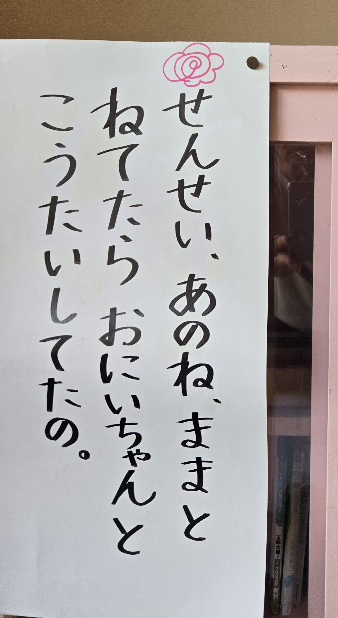 せんせい、あのね、ままと
ねてたら おにいちゃんと
こうたいしてたの。